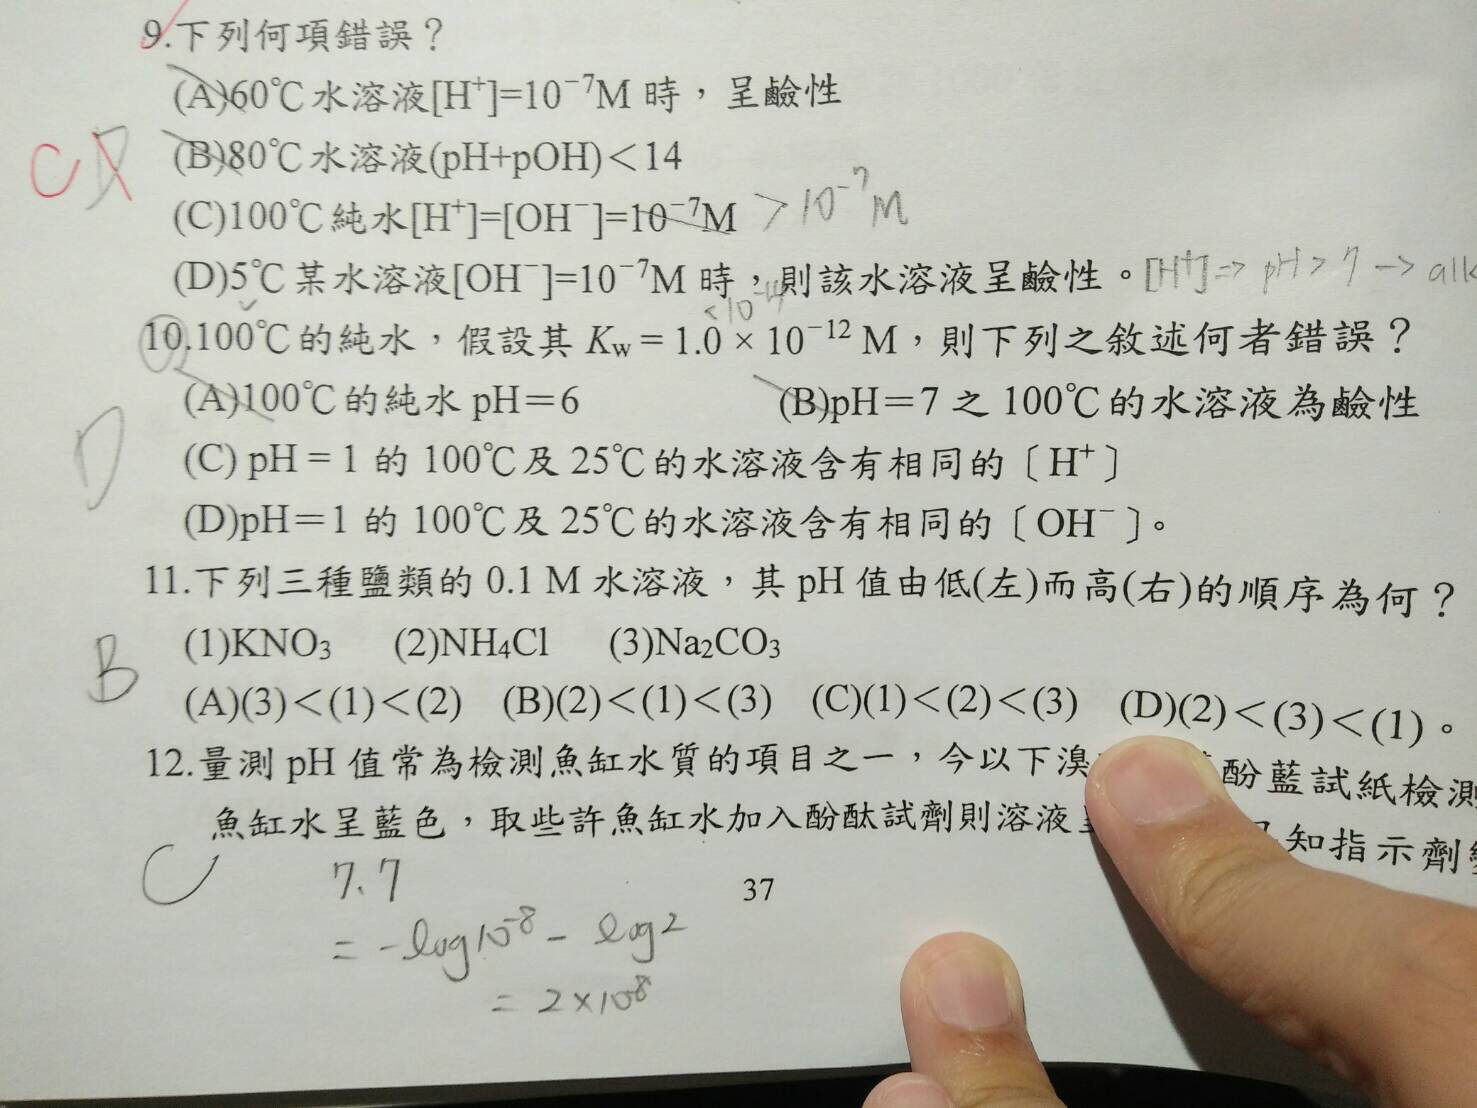 9.下列何項錯誤？
(A)60℃水溶液[H⁺]=10⁻⁷M 時，呈鹼性
(B)80℃水溶液(pH+pOH)＜14
C
(C)100℃純水[H⁺]=[OH⁻]=10⁻⁷M > 10⁻⁷ M
(D)5℃某水溶液[OH⁻]=10⁻⁷M 時，則該水溶液呈鹼性。[H⁺]⇒ pH > 7 → alk
<10⁻¹⁴
10.100℃的純水，假設其 Kw = 1.0 × 10⁻¹² M，則下列之敘述何者錯誤？
(A)100℃的純水 pH＝6 (B)pH＝7 之 100℃的水溶液為鹼性
D
(C) pH = 1 的 100℃及 25℃的水溶液含有相同的〔H⁺〕
(D)pH＝1 的 100℃及 25℃的水溶液含有相同的〔OH⁻〕。
11.下列三種鹽類的 0.1 M 水溶液，其 pH 值由低(左)而高(右)的順序為何？
(1)KNO₃ (2)NH₄Cl (3)Na₂CO₃
B
(A)(3)＜(1)＜(2) (B)(2)＜(1)＜(3) (C)(1)＜(2)＜(3) (D)(2)＜(3)＜(1)。
12.量測 pH 值常為檢測魚缸水質的項目之一，今以下溴 酚藍試紙檢測
魚缸水呈藍色，取些許魚缸水加入酚酞試劑則溶液 知指示劑
C
7.7
= -log10⁻⁸ - log2
= 2×10⁻⁸
37